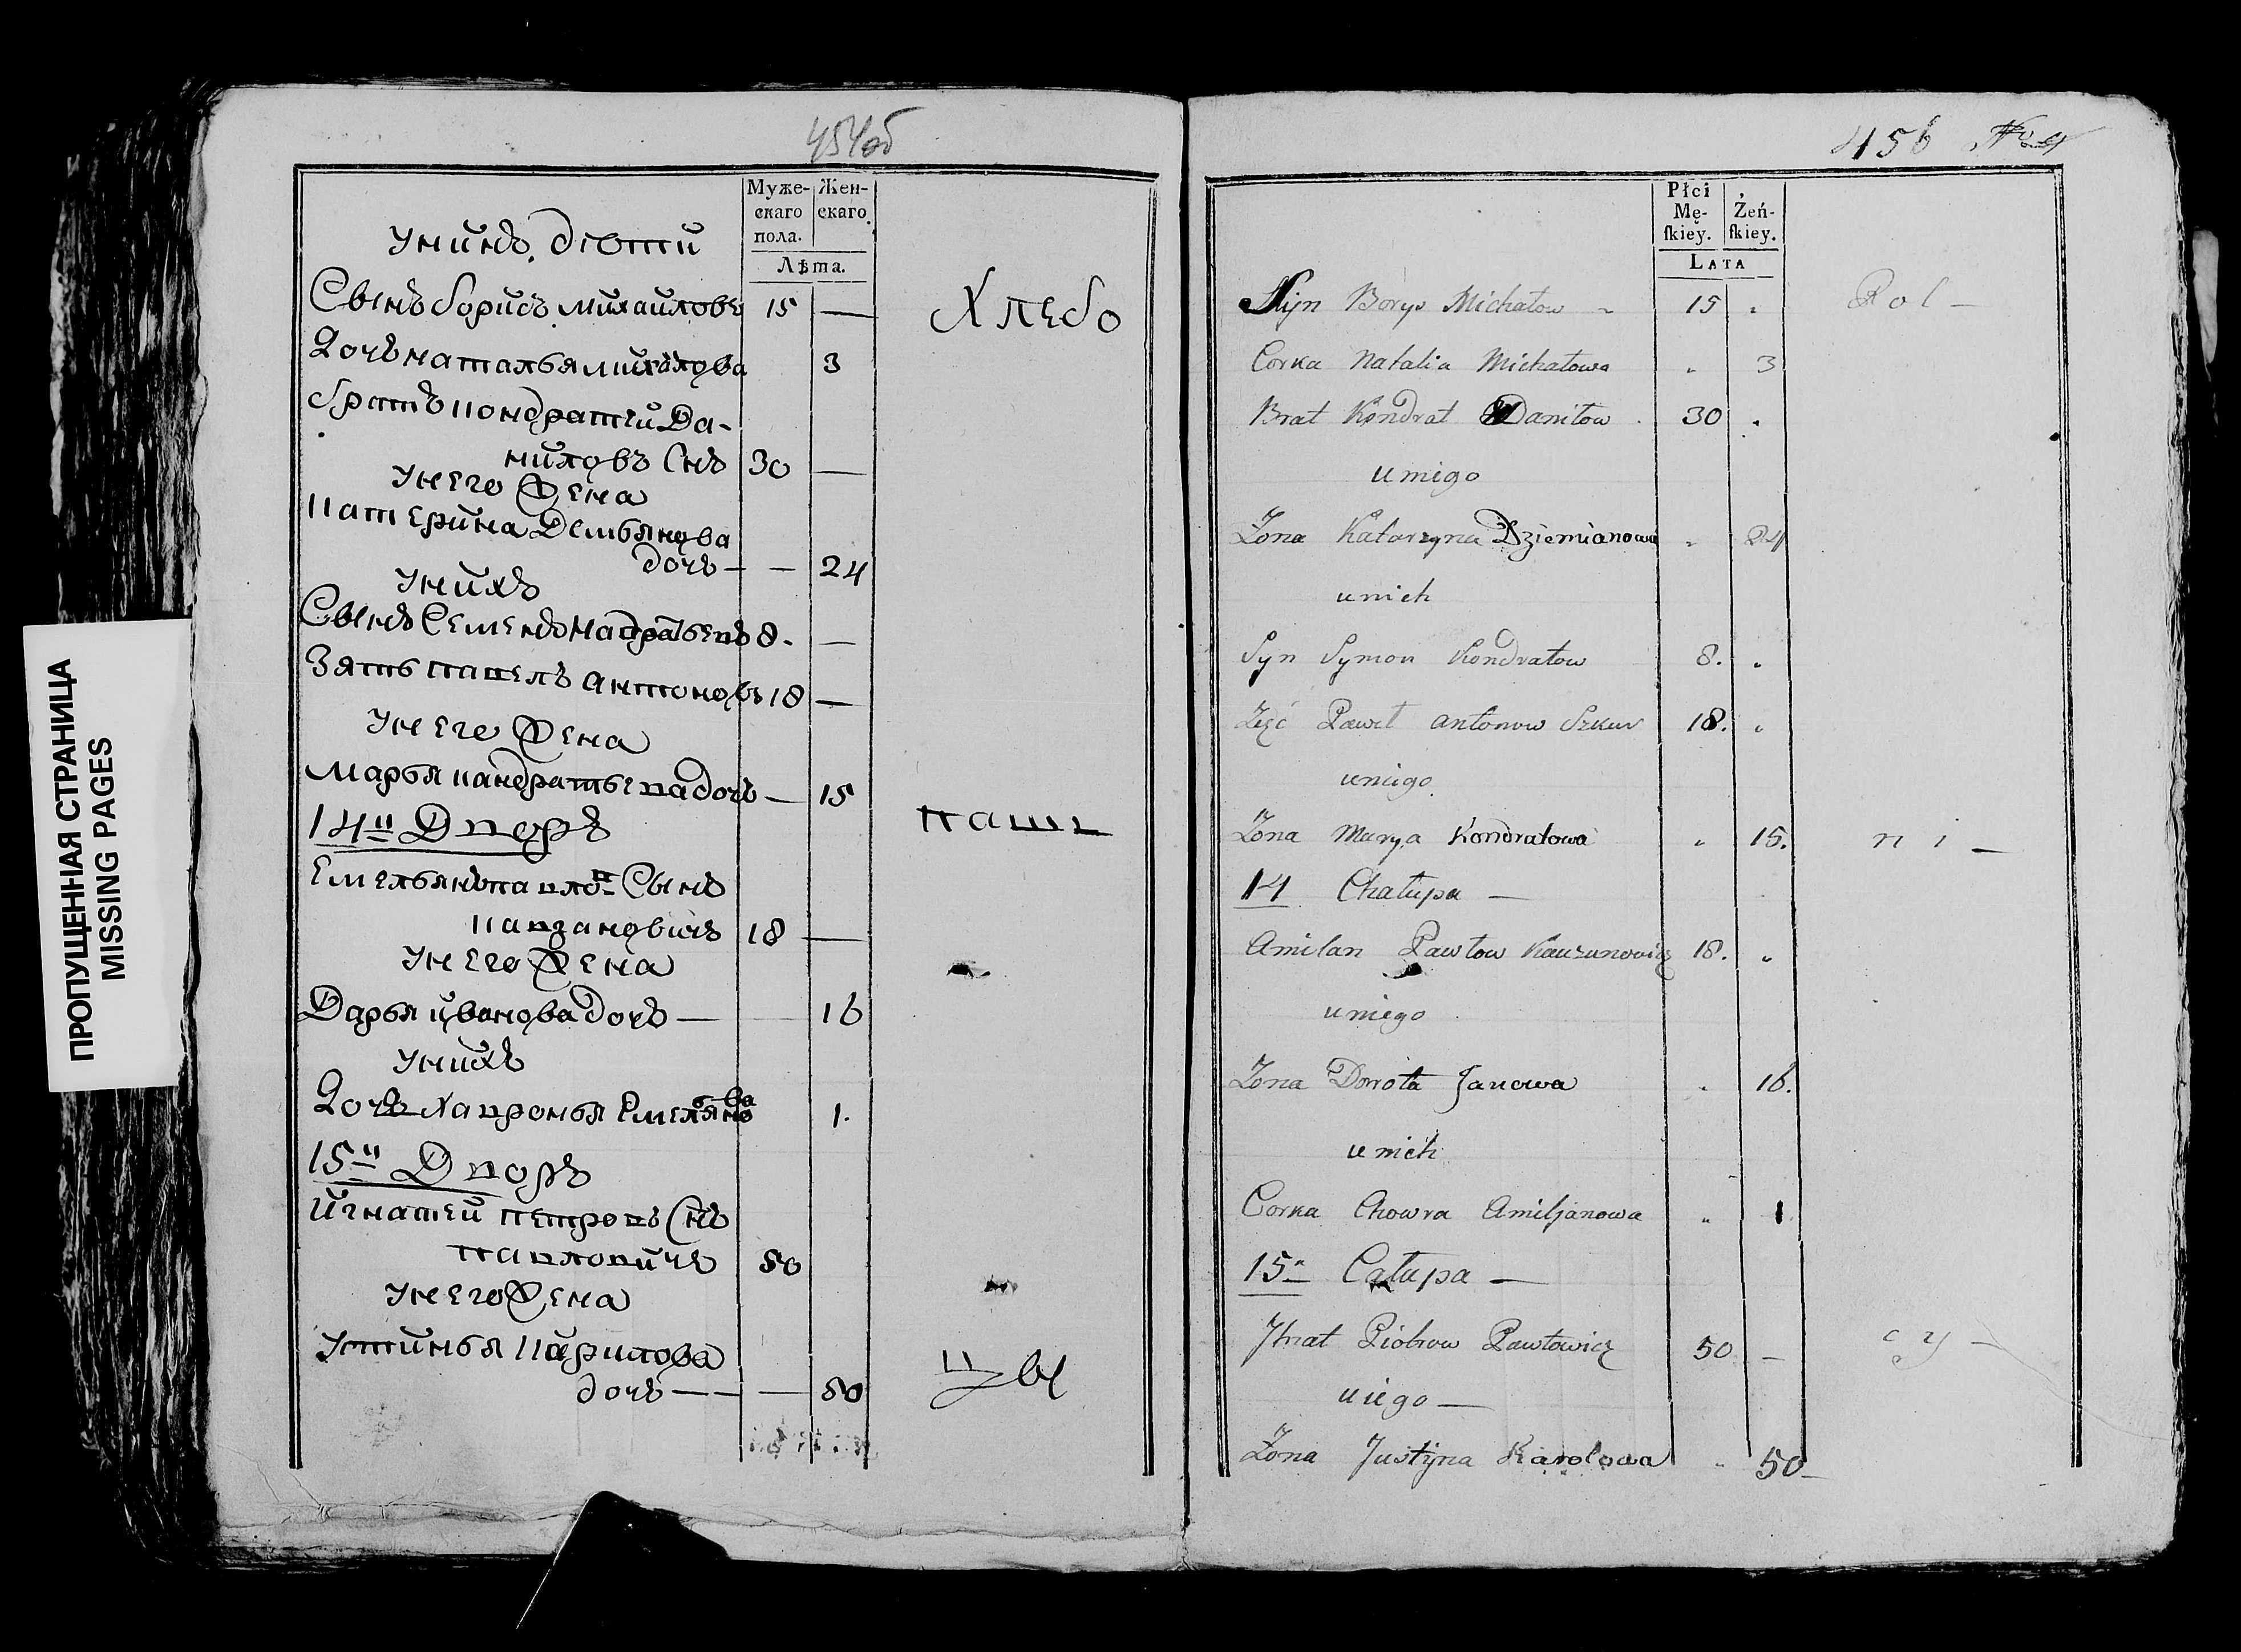 ПРОПУЩЕННАЯ СТРАНИЦА
MISSING PAGES
454об
Муже- Жен-
скаго скаго.
пола.
Лѣта.
Унихъ дѣти
Сынъ борисъ михайловъ 15 —
Дочь наталья михайлова 3
братъ кондратей Да-
ниловъ Снъ 30 —
Унего Жена
катерина Демьянова
дочь — — 24
Унихъ
Сынъ Семенъ 8. —
Зять павелъ антоновъ 18 —
Унего Жена
марья кандратьева дочь — 15
14й Дворъ
Емельянъ павловъ Сынъ
кавзановичъ 18 —
Унего Жена
Дарья иванова дочь — 16
Унихъ
Дочь Хавронья Емельянова 1.
15й Дворъ
Игнатей петровъ Снъ
павловичъ 50
Унего Жена
устинья кирилова
дочь — — — 50
Хлебо
паш
цы
456
Płci
Mę- Żeń-
ſkiey. ſkiey.
LATA
Syn Borys Michałow 15 "
Corka Natalia Michałowa " 3
Brat Kondrat Daniłow 30 "
unigo
Zona Katarzyna Dziemianowa " 24
unich
Syn Symon Kondratow 8. "
Zięć Paweł antonow Szkur 18. "
uniego
Zona Marya Kondratowa " 15.
14 Chałupa —
Amilan Pawłow Kauzunowicz 18. "
uniego
Zona Dorota Janowa " 16.
unich
Corka Chowra Amiljanowa " 1
15a Całupa —
Jhnat Piotrow Pawłowicz 50 —
uiego —
Zona Justyna Karolowa " 50
Rol —
ni —
cy —